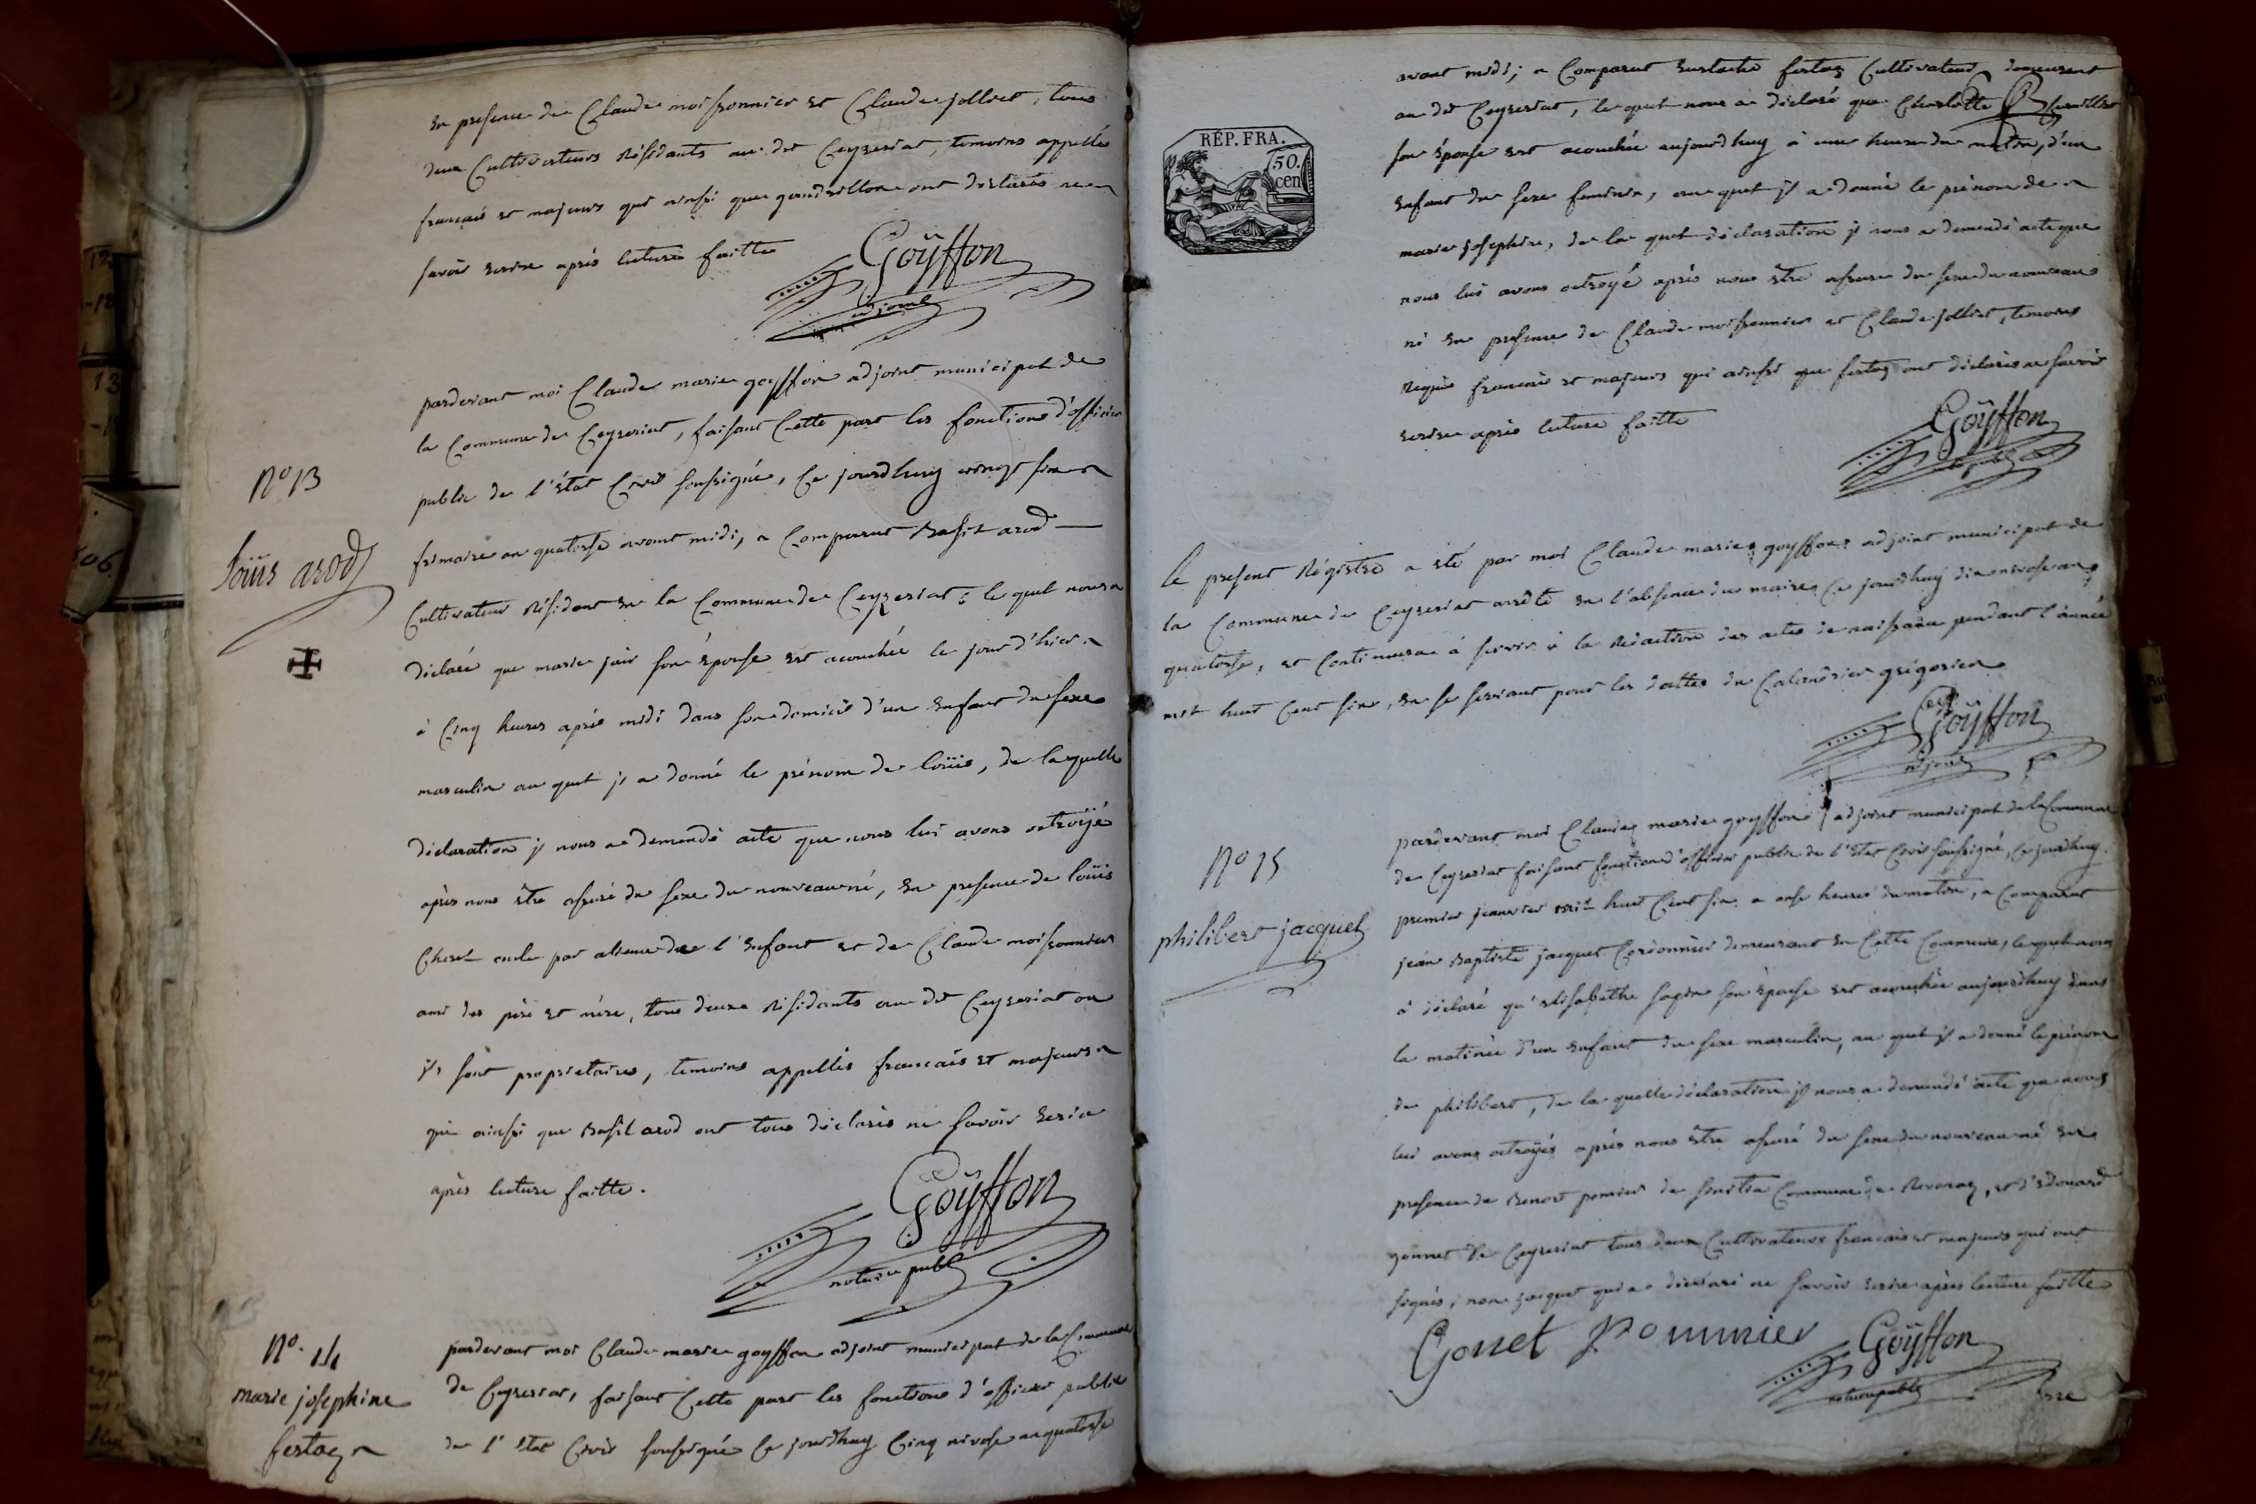 en presence de Claude moissonnier et Claude jolliet, tous
deux Cultivateurs résidants au dit Ceyzeriat, temoins appellés
francais et majeurs qui ainsi que gaudrillon ont déclarés ne
savoir écrire après lecture faitte
Goÿffon
adjoint
N° 13
Loüis arod
pardevant moi Claude marie goyffon adjoint municipal de
la Commune de Ceyzeriat, faisant Cette part les fonctions d'officier
public de l'état Civil soussigné, Ce jourdhuy vingt six
frimaire an quatorse avant midi, a Comparut Basil arod
Cultivateur résidant en la Commune de Ceyzeriat; le quel nous a
déclaré que marie jair son épouse est acouchée le jour d'hier
à Cinq heures après midi dans son domicil d'un enfant du sexe
masculin au quel il a donné le prénom de loüis, de laquelle
déclaration il nous a demandé acte que nous lui avons octroÿé
après nous être assuré du sexe du nouveau né, en presence de loüis
oncle par aliance de l'enfant et de Claude moissonnier
ami des père et mère, tous deux résidants au dit Ceyzeriat ou
ils sont propriétaires, temoins appellés francais et majeurs
qui ainsi que Basil arod ont tous déclarés ne savoir écrire
après lecture faitte.
Goÿffon
notaire publ
N°. 14
marie josephine
fertaz
pardevant moi Claude marie goyffon adjoint municipal de la Commune
de Ceyzeriat, faisant Cette part les fonctions d'officier public
de l'état Civil soussigné Ce jourdhuy Cinq nivose an quatorse
RÉP. FRA.
50.
cen
avant midi; a Comparut Eustache fertaz Cultivateur demeurant
au dit Ceyzeriat, le quel nous a déclaré que Charlotte
son épouse est acouchée aujourdhuy à une heure du matin, d'un
enfant du sexe feminin, au quel il a donné le prénom de
marie josephine, de la quel déclaration il nous a demandé acte que
nous lui avons octroyé après nous être assuré du sexe du nouveau
né en presence de Claude moissonnier et Claude jolliet, temoins
requis francais et majeurs qui ainsi que fertaz ont déclarés ne savoir
écrire après lecture faitte
Goÿffon
Le present Régistre a été par moi Claude marie goyffon adjoint municipal de
la Commune de Ceyzeriat arrêté en l'absence du maire, Ce jourdhuy dix nivose an
quatorse, et Continuera à servir à la rédaction des actes de naissance pendant l'année
mil huit Cent six, en se servant pour les dattes du Calendrier grégorien
Goÿffon
adjoint
N° 15
philibert jacquet
pardevant moi Claude marie goyffon adjoint municipal de la Commune
de Ceyzeriat faisant fonction d'officier public de l'état Civil soussigné, Ce jourdhuy
premier janvier mil huit Cent six a onse heures du matin, a Comparut
jean Baptiste jacquet Cordonnier demeurant en Cette Commune, lequel nous
a déclaré qu'elisabethe sapin son épouse est acouchée aujourdhuy dans
la matinée d'un enfant du sexe masculin, au quel il a donné le prénom
de philibert, de la quelle déclaration il nous a demandé acte que nous
lui avons octroyés après nous être assuré du sexe du nouveau né en
presence de Benoit pomier de Commune de Revonaz, et d'Edouard
gonnet de Ceyzeriat tous deux Cultivateurs francais et majeurs qui ont
signés, non jacquet qui a déclaré ne savoir écrire après lecture faitte
Gonet Pommier Goÿffon
notaire public